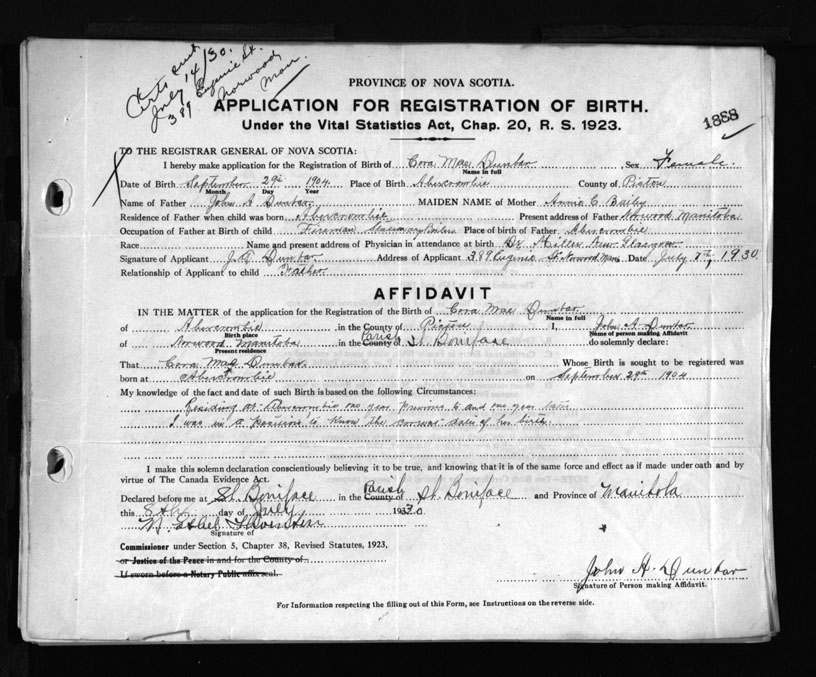 Certs sent
July 14/30.
389 Eugenie St.
Norwood
Man
PROVINCE OF NOVA SCOTIA.
APPLICATION FOR REGISTRATION OF BIRTH.
Under the Vital Statistics Act, Chap. 20, R. S. 1923.
1888
TO THE REGISTRAR GENERAL OF NOVA SCOTIA:
I hereby make application for the Registration of Birth of Cora Mae Dunbar Sex Female.
Name in full
Date of Birth September 29th 1904 Place of Birth Abercrombie County of Pictou
Month Day Year
Name of Father John A Dunbar MAIDEN NAME of Mother Annie C Baily
Residence of Father when child was born Abercrombie Present address of Father Norwood Manitoba
Occupation of Father at Birth of child Fireman Stationary Boilers Place of birth of Father Abercrombie
Race Name and present address of Physician in attendance at birth Dr Miller New Glasgow
Signature of Applicant J. A Dunbar Address of Applicant 389 Eugenie St Norwood Man Date July 8th, 1930
Relationship of Applicant to child Father
AFFIDAVIT
IN THE MATTER of the application of Registration of the Birth of Cora Mae Dunbar
Name in full
of Abercrombie in the County of Pictou I, John A Dunbar
Birth place Name of person making Affidavit
of Norwood Manitoba in the County of Parish St. Boniface do solemnly declare:
Present residence
That Cora Mae Dunbar Whose Birth is sought to be registered was
born at Abercrombie on September 29th 1904
My knowledge of the fact and date of such Birth is based on the following Circumstances:
Residing at Abercrombie one year previous to and one year later
I was in a position to know the correct date of her birth.
I make this solemn declaration conscientiously believing it to be true, and knowing that it is of the same force and effect as if made under oath and by
virtue of The Canada Evidence Act.
Declared before me at St. Boniface in the County of Parish St. Boniface and Province of Manitoba
this 8th day of July 1930
Ethel
Signature of
Commissioner under Section 5, Chapter 38, Revised Statutes, 1923,
or Justice of the Peace in and for the County of
If sworn before a Notary Public affix seal.
John A. Dunbar
Signature of Person making Affidavit.
For Information respecting the filling out of this Form, see Instructions on the reverse side.